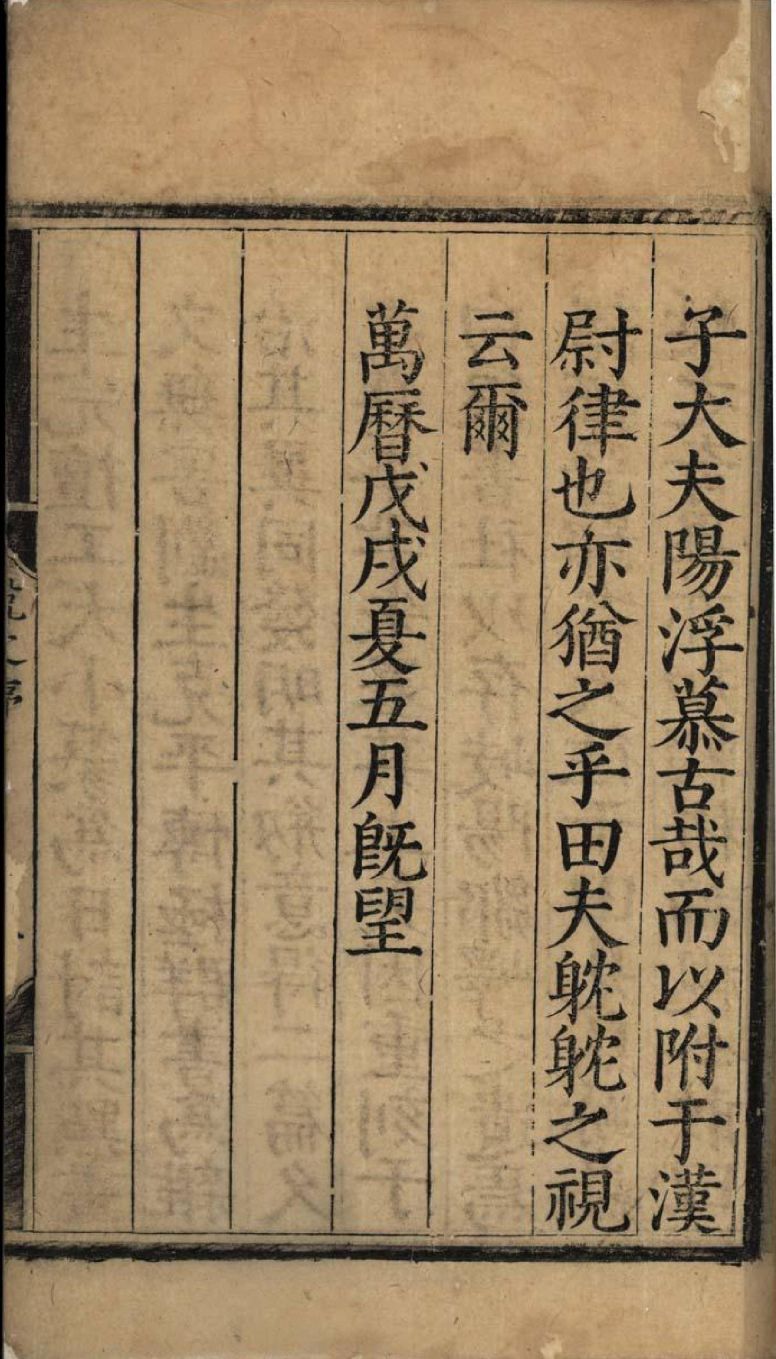 子大夫陽浮慕古哉而以附于漢
尉律也亦猶之乎田夫躭躭之視
云爾
萬曆戊戌夏五月旣望